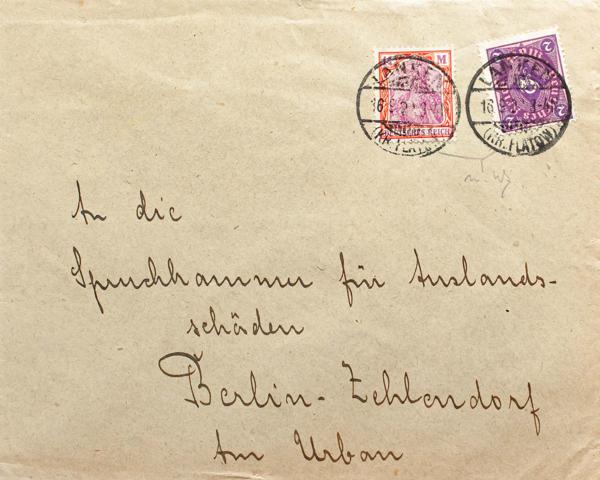 M
LANKEN
LANKEN
2
2
(KR. FLATOW)
(KR. FLATOW)
An die
Spruchkammer für Auslands-
schäden
Berlin-Zehlendorf
Am Urban